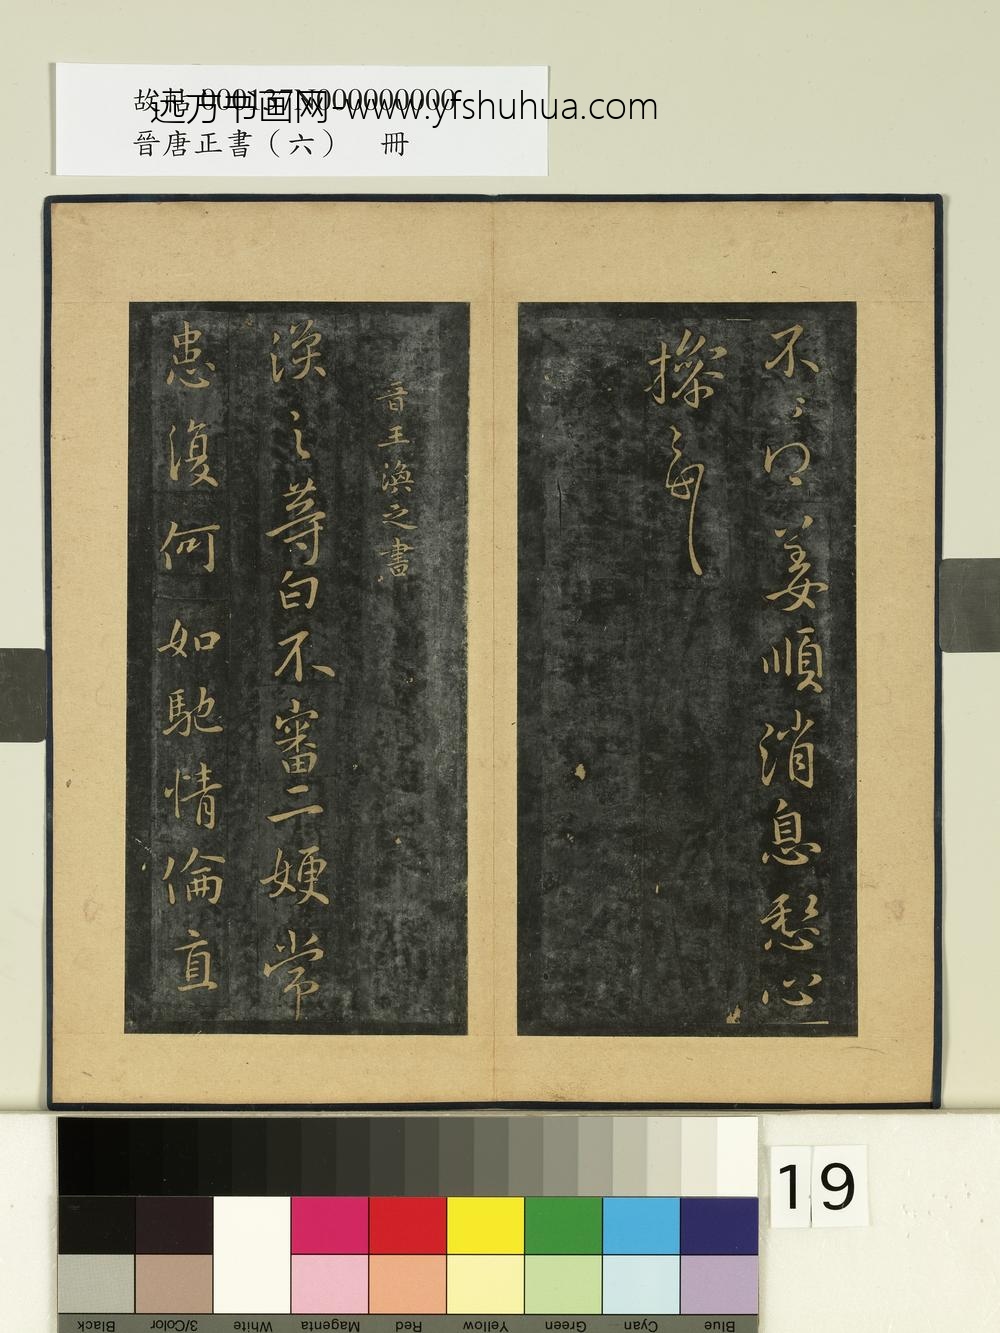 故帖 000137N000000000
远方书画网-www.yfshuhua.com
晉唐正書（六）　冊
不
姜順消息愁心
操
晉王渙之書
渙之等白不審二嫂常
患復何如馳情倫直
19
Black
3/Color
White
Magenta
Red
Yellow
Green
Cyan
Blue